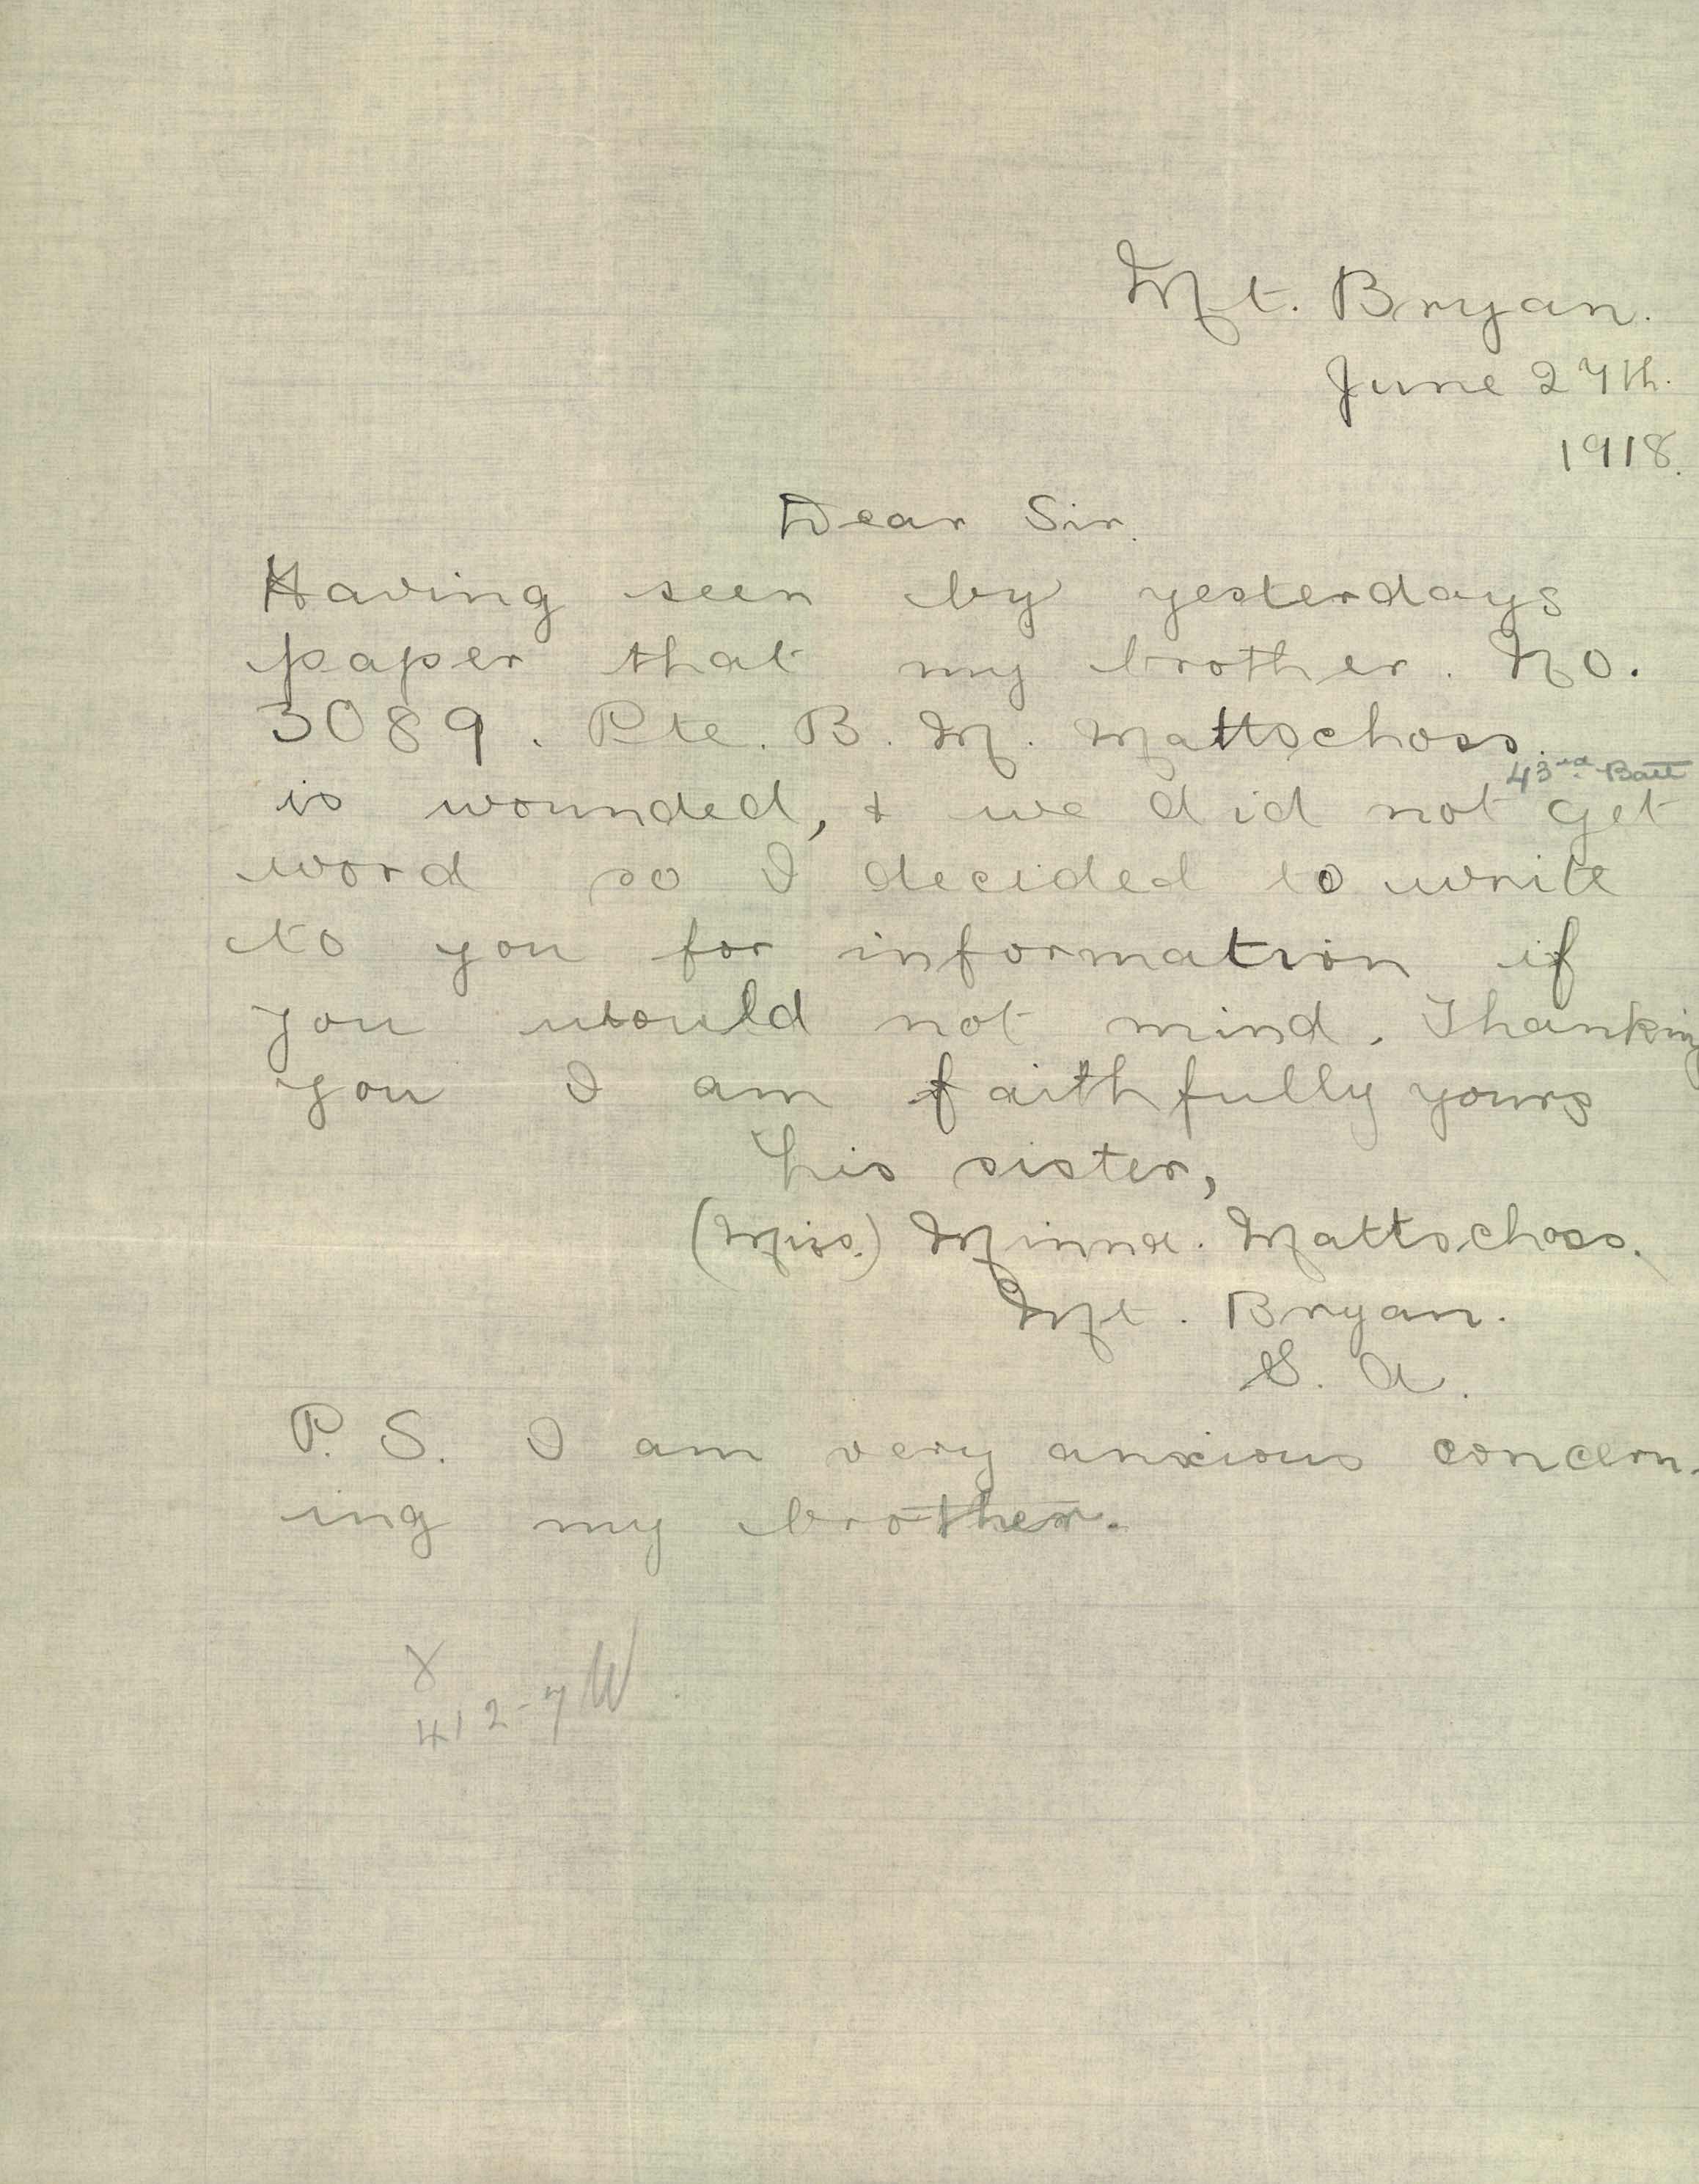 Mt. Bryan.
June 27th.
1918.
Dear Sir.
Having seen by yesterdays
paper that my brother. No.
3089. Pte. B. M. Mattschoss.
43rd. Batt
is wounded, & we did not get
word so I decided to write
to you for information if
you would not mind. Thanking
you I am faithfully yours
his sister,
(Miss.) Minna. Mattschoss.
Mt. Bryan.
S. A.
P. S. I am very anxious concern-
ing my brother.
412-7W